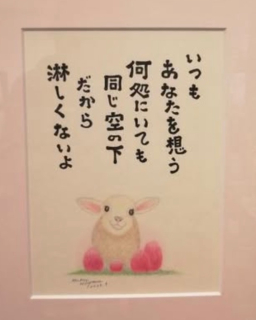 いつも
あなたを想う
何処にいても
同じ空の下
だから
淋しくないよ